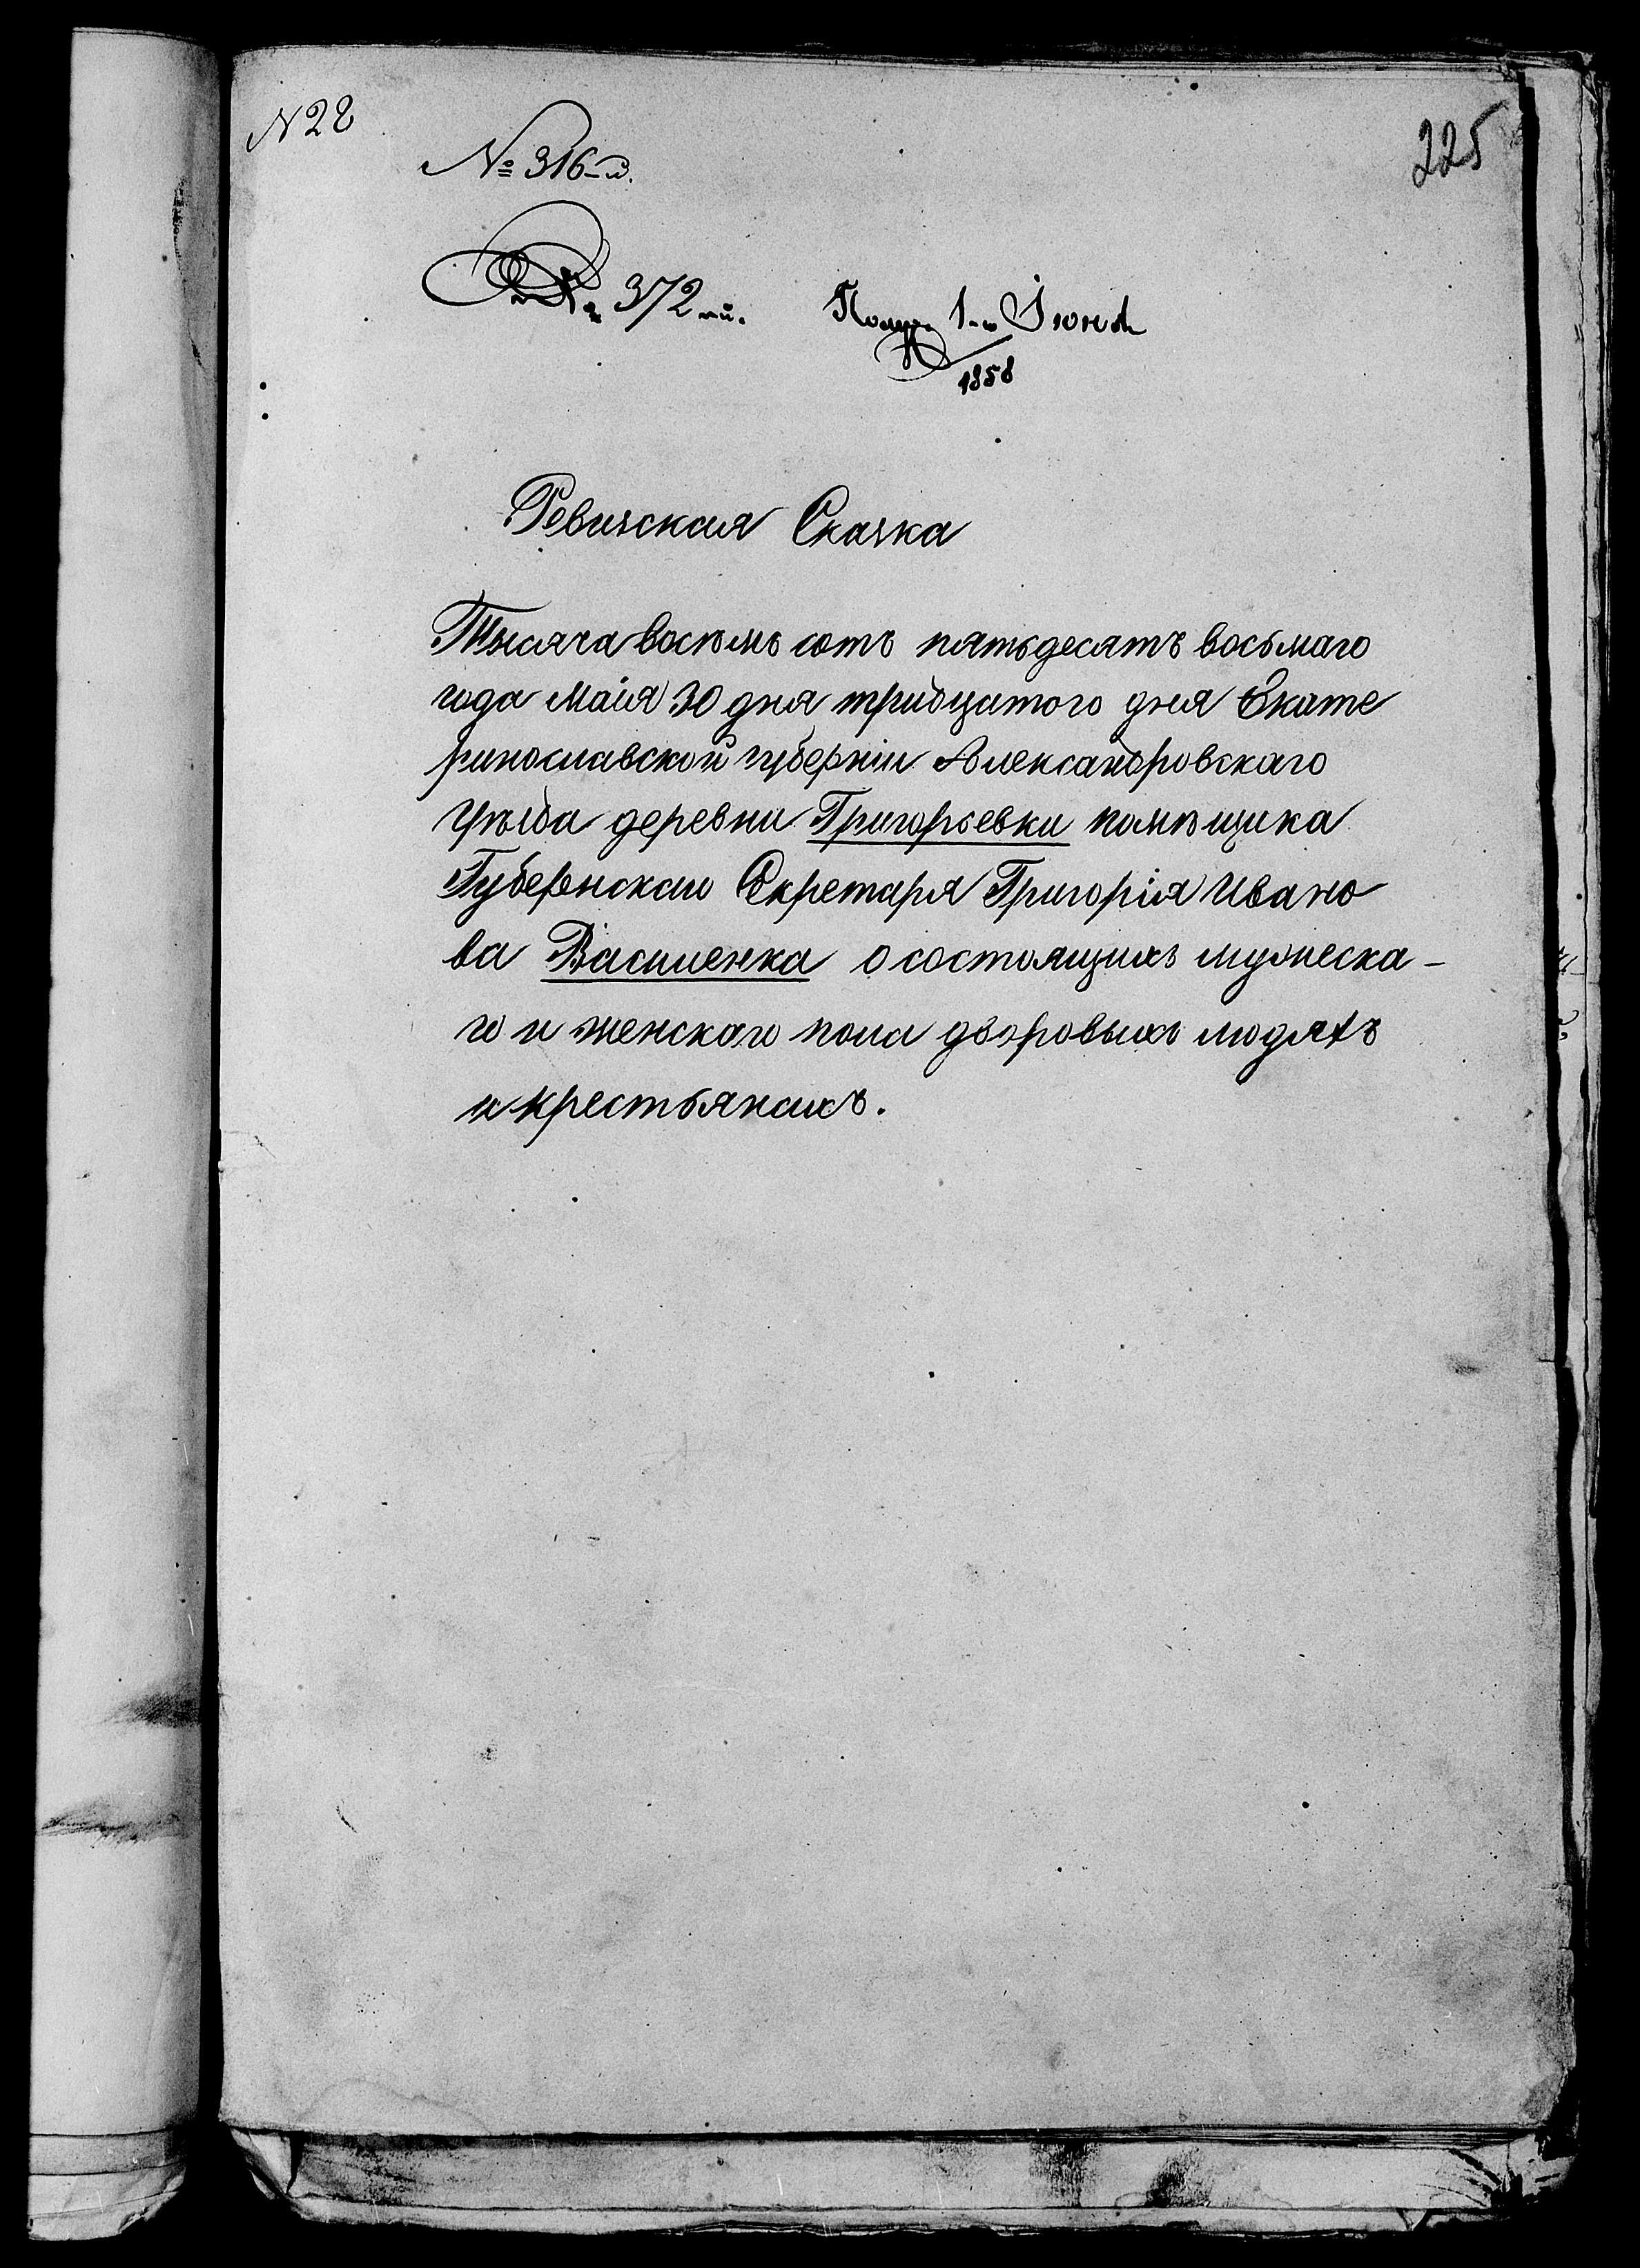 N 28
225
№ 316-й.
№ 372-й. Получ. 1-го Іюня
1858
Ревизская Сказка
Тысяча восѣмь сотъ пятьдесятъ восьмаго
года Маія 30 дня тридцатого дня Екате
ринославской губерніи Александровскаго
уѣзда деревни Григорьевки помѣщика
Губернскаго Секретаря Григорія Ивано
ва Василенка о состоящихъ мужеска-
го и женскаго пола дворовыхъ людяхъ
и крестьянахъ.